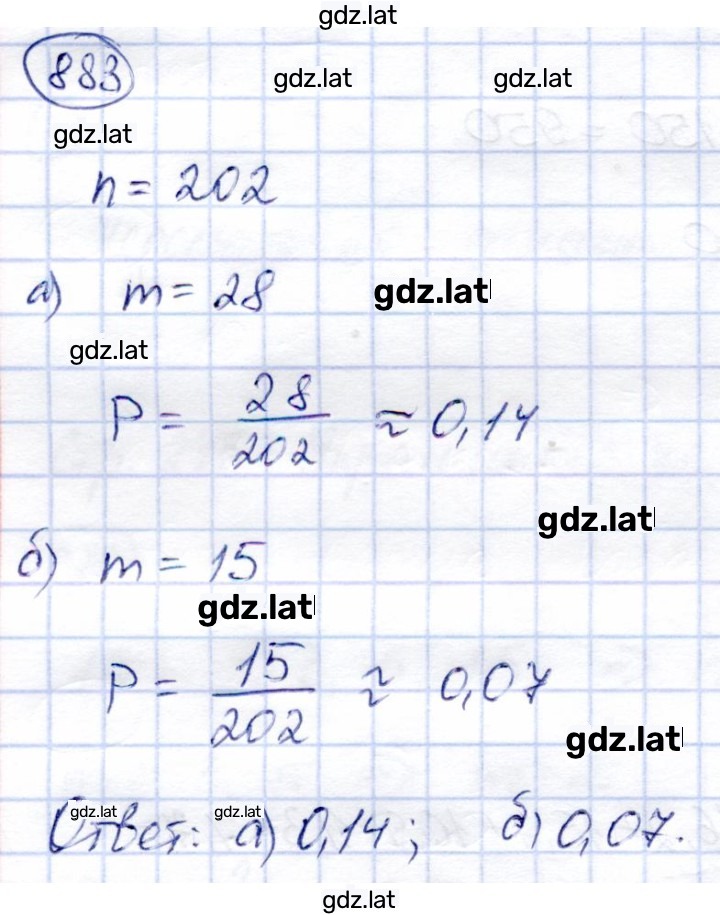 gdz.lat
883
gdz.lat gdz.lat
gdz.lat
n = 202
а) m = 28 gdz.lat
gdz.lat
P = 28/202 ≈ 0,14
gdz.lat
б) m = 15
gdz.lat
P = 15/202 ≈ 0,07
gdz.lat
gdz.lat gdz.lat
Ответ: а) 0,14; б) 0,07.
gdz.lat